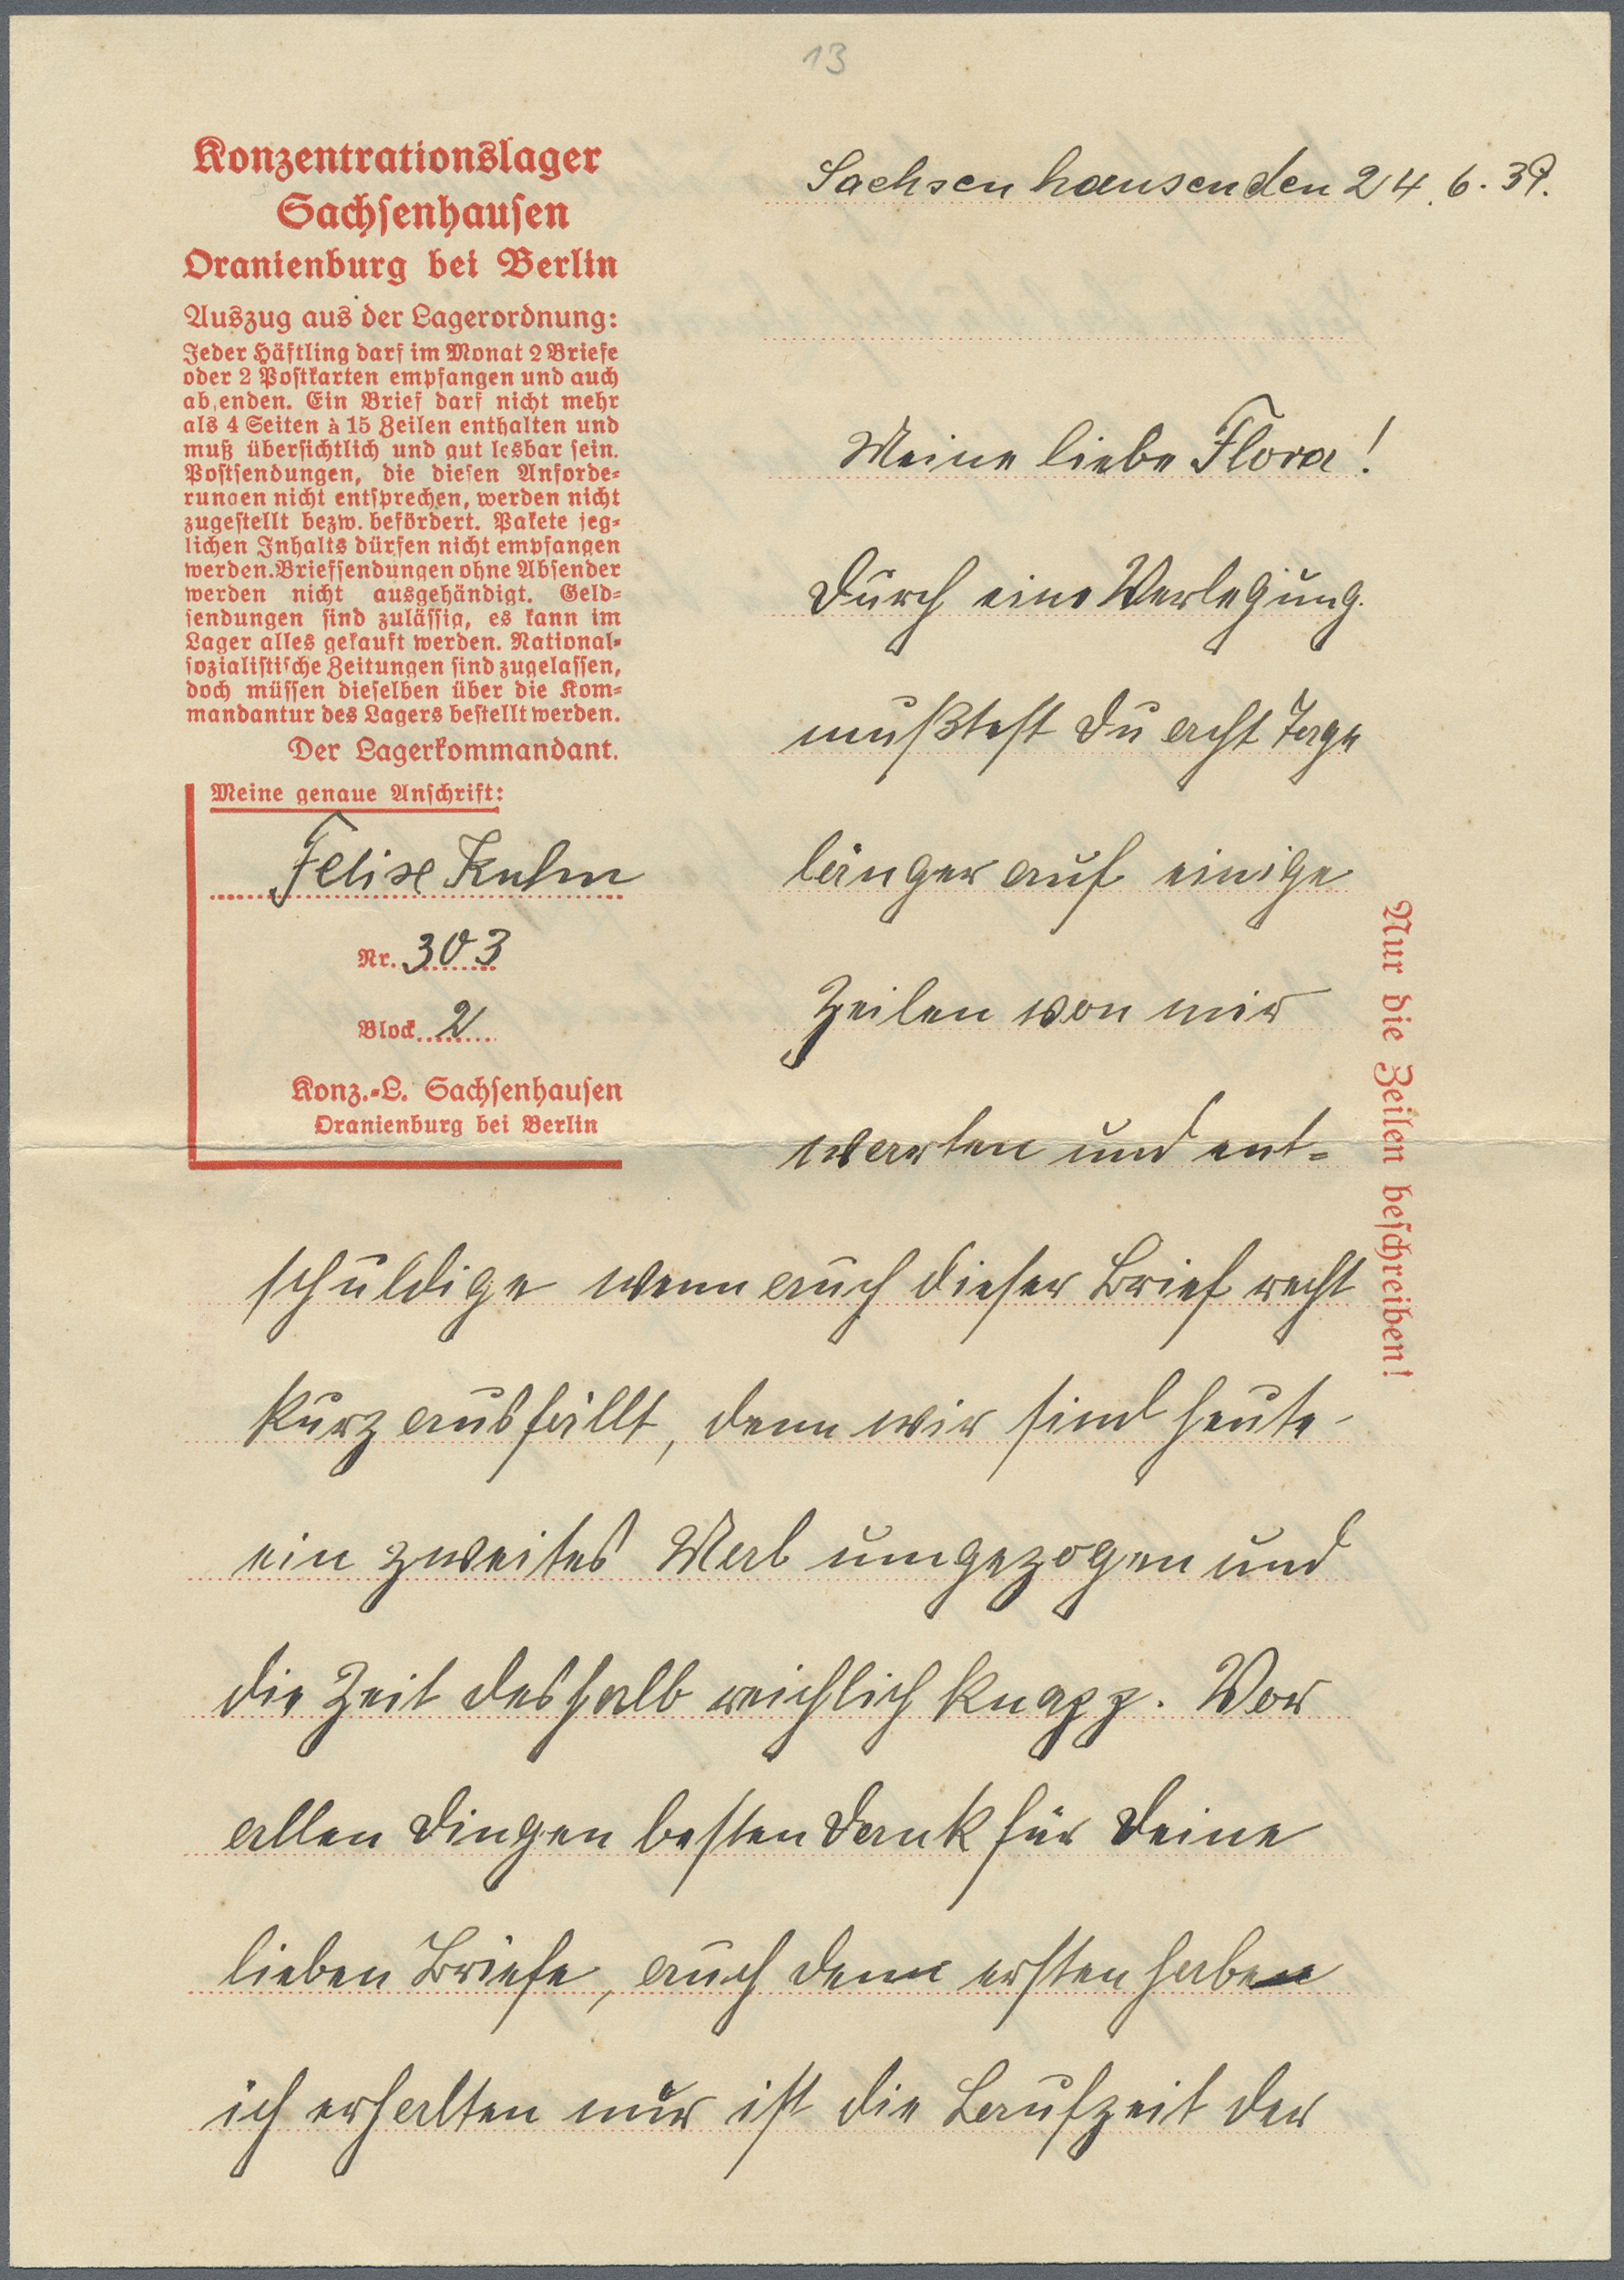 13
Konzentrationslager
Sachsenhausen
Oranienburg bei Berlin
Auszug aus der Lagerordnung:
Jeder Häftling darf im Monat 2 Briefe
oder 2 Postkarten empfangen und auch
absenden. Ein Brief darf nicht mehr
als 4 Seiten à 15 Zeilen enthalten und
muß übersichtlich und gut lesbar sein.
Postsendungen, die diesen Anforde-
rungen nicht entsprechen, werden nicht
zugestellt bezw. befördert. Pakete jeg-
lichen Inhalts dürfen nicht empfangen
werden. Briefsendungen ohne Absender
werden nicht ausgehändigt. Geld-
sendungen sind zulässig, es kann im
Lager alles gekauft werden. National-
sozialistische Zeitungen sind zugelassen,
doch müssen dieselben über die Kom-
mandantur des Lagers bestellt werden.
Der Lagerkommandant.
Meine genaue Anschrift:
Felixe
Nr. 303
Block 2
Konz.-L. Sachsenhausen
Oranienburg bei Berlin
Sachsenhausen den 24.6.39.
Meine liebe Flora!
Durch eine Verlegung
mußtest Du acht Tage
länger auf einige
Zeilen von mir
warten und ent-
schuldige wenn auch dieser Brief recht
kurz ausfällt, denn wir sind heute
ein zweites Mal umgezogen und
die Zeit deshalb reichlich knapp. Vor
allen Dingen besten Dank für Deine
lieben Briefe, auch denn ersten habe
ich erhalten nur ist die Laufzeit der
Nur die Zeilen beschreiben!